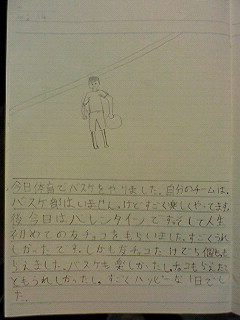 今日体育でバスケをやりました。自分のチームは、
バスケ部はいません。けどすごく楽しくやってます。
後今日はバレンタインです。そして人生
初めての友チョコをもらいました。すごくうれ
しかったです。しかも友チョコだけで5個も
もらえました。バスケも楽しかったし、チョコももらえた
ともうれしかったし。すごくハッピーな1日でし
た。